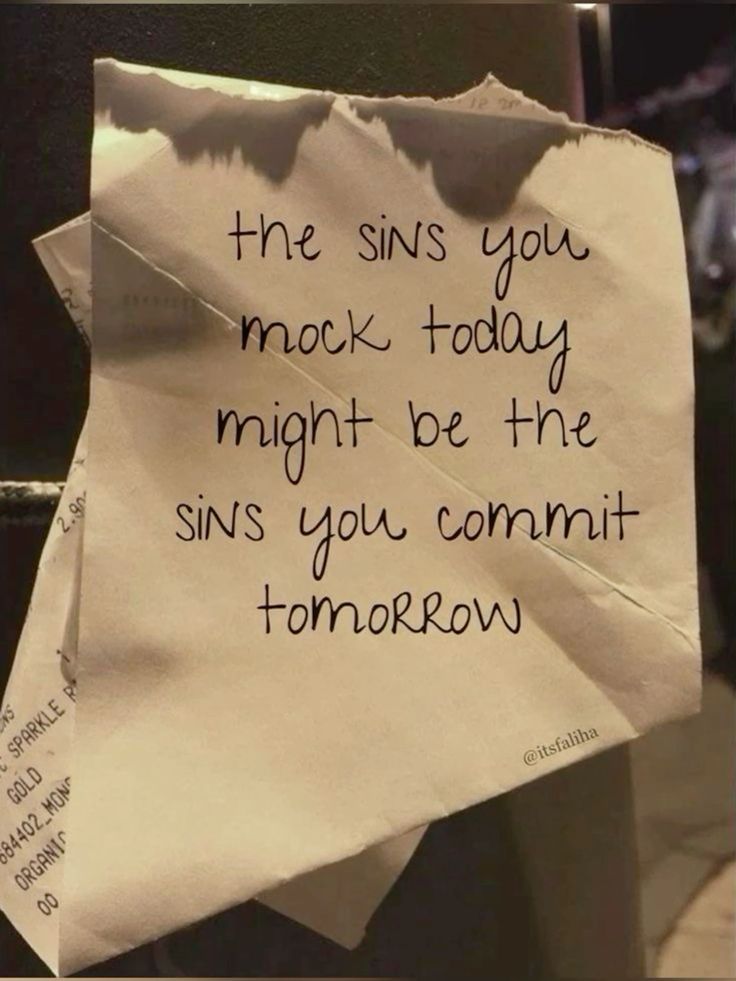 the sins you
mock today
might be the
sins you commit
tomorrow
@itsfaliha
2.80
SPARKLE
GOLD
684402_MONO
ORGANIC
00